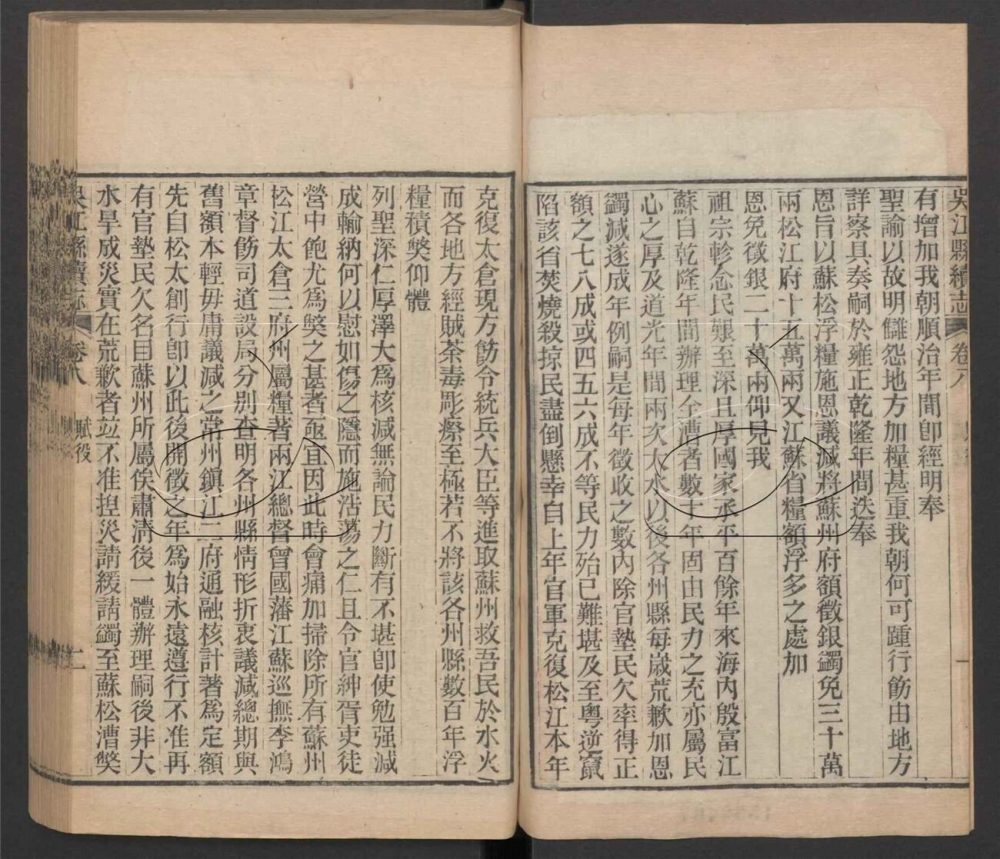 吳江縣續志 卷八
有增加我朝順治年間卽經明奉
聖諭以故明讎怨地方加糧甚重我朝何可踵行飭由地方
詳察具奏嗣於雍正乾隆年間迭奉
恩旨以蘇松浮糧施恩議減將蘇州府額徵銀蠲免三十萬
兩松江府十五萬兩又江蘇省糧額浮多之處加
恩免徵銀二十萬兩仰見我
祖宗軫念民艱至深且厚國家承平百餘年來海內殷富江
蘇自乾隆年間辦理全漕者數十年固由民力之充亦屬民
心之厚及道光年間兩次大水以後各州縣每歲荒歉加恩
蠲減遂成年例嗣是每年徵收之數內除官墊民欠率得正
額之七八成或四五六成不等民力殆已難堪及至粵逆竄
陷該省焚燒殺掠民盡倒懸幸自上年官軍克復松江本年
克復太倉現方飭令統兵大臣等進取蘇州救吾民於水火
而各地方經賊荼毒彫瘵至極若不將該各州縣數百年浮
糧積獘仰體
列聖深仁厚澤大爲核減無論民力斷有不堪卽使勉强減
成輸納何以慰如傷之隱而施浩蕩之仁且令官紳胥吏徒
營中飽尤爲獘之甚者亟宜因此時會痛加掃除所有蘇州
松江太倉三府州屬糧著兩江總督曾國藩江蘇巡撫李鴻
章督飭司道設局分別查明各州縣情形折衷議減總期與
舊額本輕毋庸議減之常州鎮江二府通融核計著爲定額
先自松太創行卽以此後開徵之年爲始永遠遵行不准再
有官墊民欠名目蘇州所屬俟肅清後一體辦理嗣後非大
水旱成災實在荒歉者竝不准揑災請緩請蠲至蘇松漕獘
吳江縣續志 卷八 賦役 二